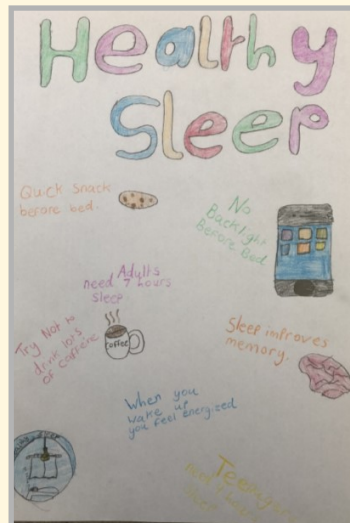 Healthy
Sleep
Quick snack
before bed.
No
Backlight
Before Bed
Adults
need 7 hours
sleep
Try Not to
drink lots
of caffeine
Coffee
Sleep improves
memory.
When you
wake up
you feel energized
Teenagers